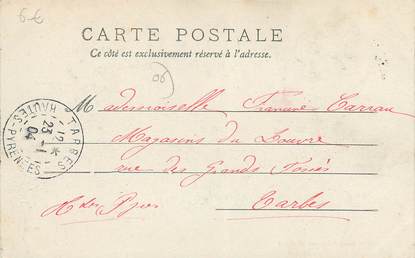 6.€
CARTE POSTALE
Ce côté est exclusivement réservé à l'adresse.
06
TARBES
12 *
23 -1
04
HAUTES-PYRÉNÉES
Mademoiselle
Magasins du Louvre
rue des Grands Fossés
Htes Pyrs Tarbes